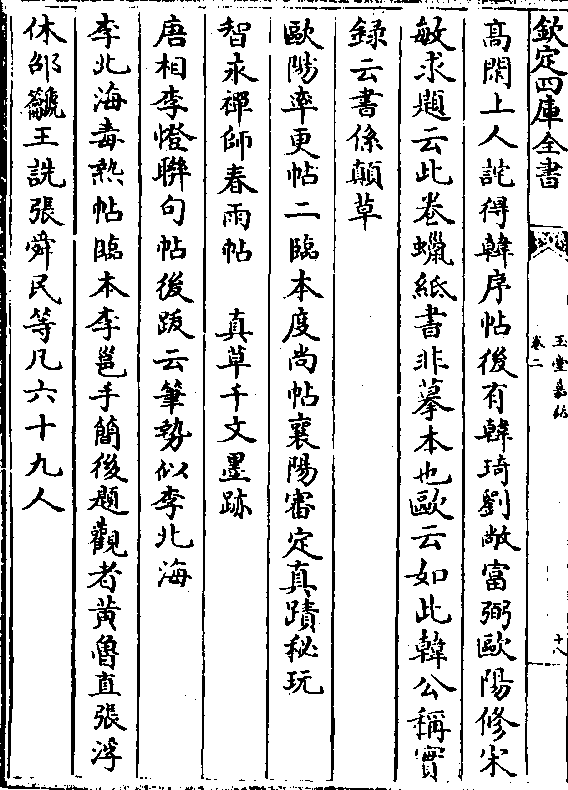 欽定四庫全書
玉堂嘉話
卷二
十八
髙閑上人詫得韓序帖後有韓琦劉敞富弼歐陽修宋
敏求題云此卷蠟紙書非摹本也歐云如此韓公稱實
録云書係顛草
歐陽率更帖二臨本度尚帖襄陽審定真蹟秘玩
智永禪師春雨帖　真草千文墨跡
唐相李憕聯句帖後跋云筆勢似李北海
李北海毒熱帖臨本李邕手簡後題觀者黄魯直張浮
休邵王詵張舜民等凡六十九人